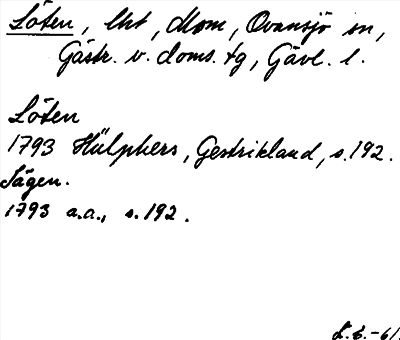 Löten, lht, Mom, Ovansjö sn,
Gästr. v. doms. tg, Gävl. l.
Löten
1793 Hülphers, Gestrikland, s. 192.
Sägen.
1793 a.a., s. 192.
L.E.-61